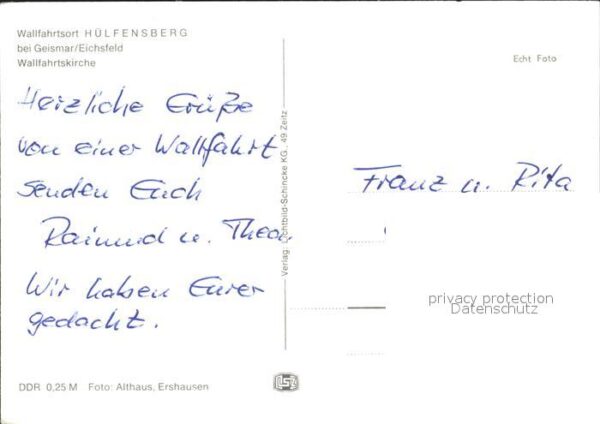 Wallfahrtsort HÜLFENSBERG
bei Geismar/Eichsfeld
Wallfahrtskirche
Echt Foto
Herzliche Grüße
von einer Wallfahrt
senden Euch
Raimund u. Theo.
Wir haben Eurer
gedacht.
Verlag: Lichtbild-Schincke KG., 49 Zeitz
Franz u. Rita
privacy protection
Datenschutz
DDR 0,25 M Foto: Althaus, Ershausen
LSZ